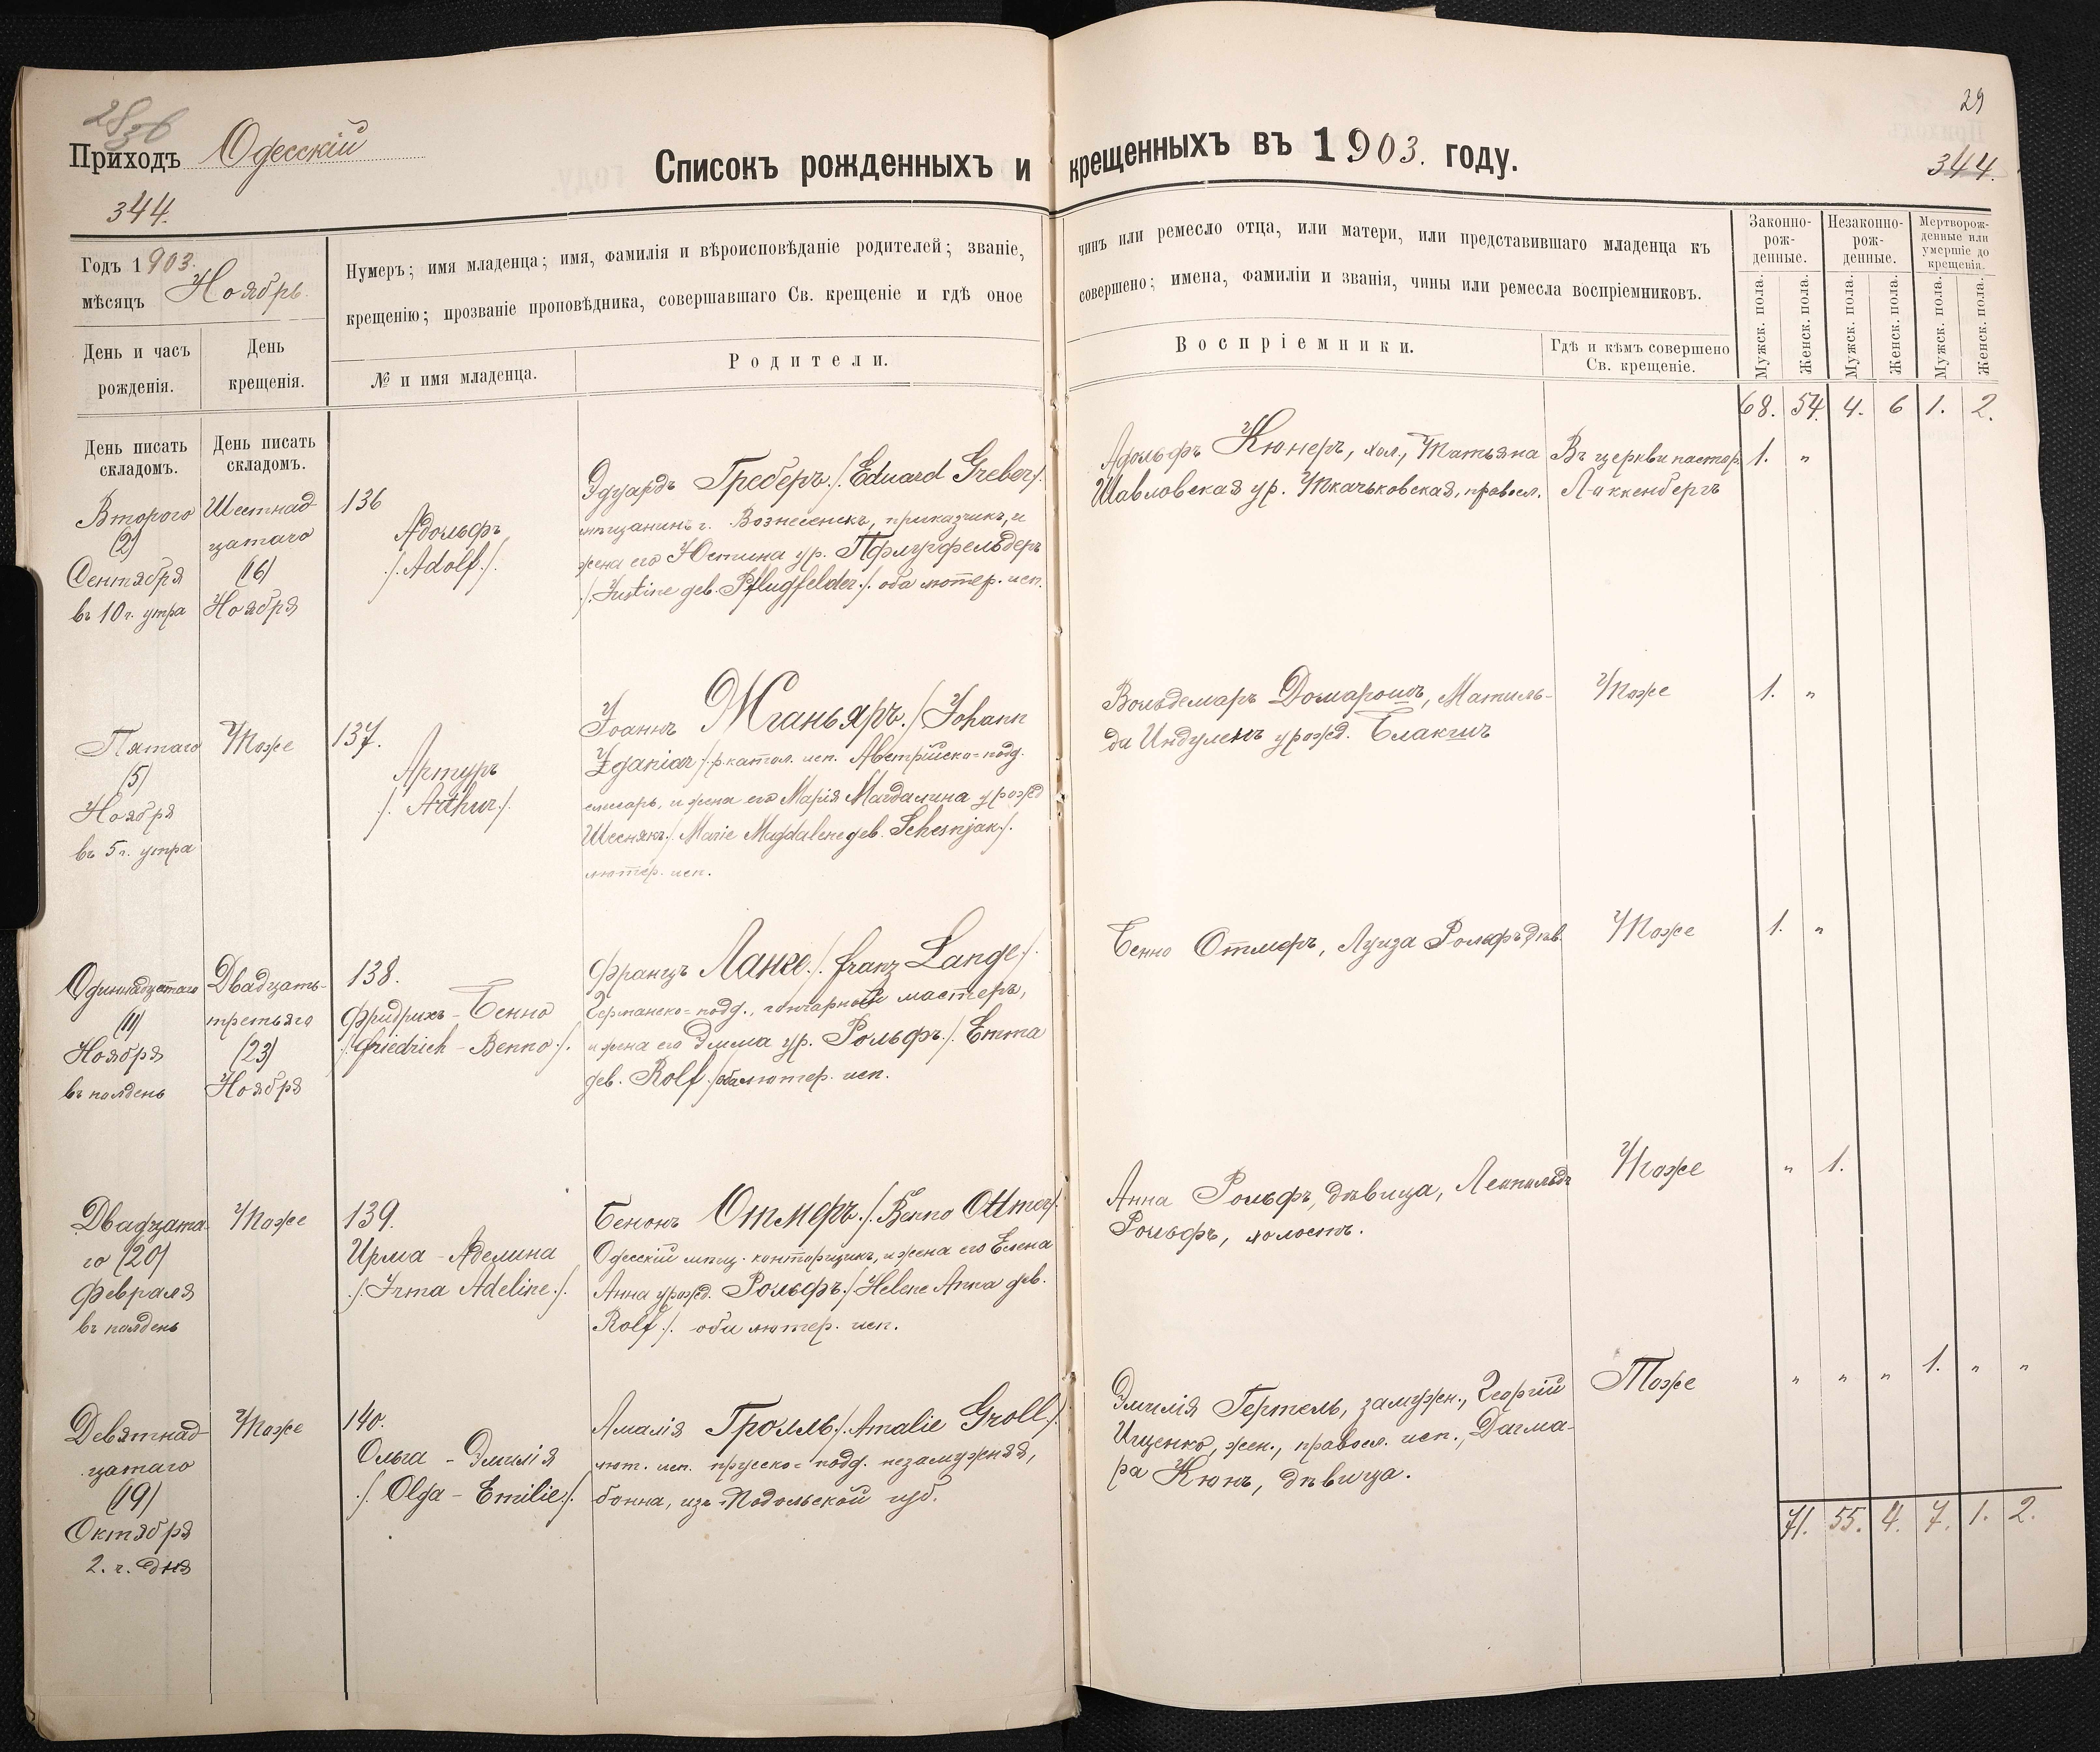 2836
Приходъ Одесскій
344.
Списокъ рожденныхъ и крещенныхъ въ 1903. году.
29
344.
Годъ 1903.
мѣсяцъ Ноябрь.
День и часъ рожденія.
День крещенія.
Нумеръ; имя младенца; имя, фамилія и вѣроисповѣданіе родителей; званіе, чинъ или ремесло отца, или матери, или представившаго младенца къ
крещенію; прозваніе проповѣдника, совершавшаго Св. крещеніе и гдѣ оное совершено; имена, фамиліи и званія, чины или ремесла воспріемниковъ.
№ и имя младенца.
Родители.
Воспріемники.
Гдѣ и кѣмъ совершено Св. крещеніе.
Законно-рож-денные.
Незаконно-рож-денные.
Мертворож-денные или умершіе до крещенія.
Мужск. пола.
Женск. пола.
Мужск. пола.
Женск. пола.
Мужск. пола.
Женск. пола.
68. 54. 4. 6 1. 2.
День писать складомъ.
День писать складомъ.
Второго
(2)
Сентября
въ 10 ч. утра
Шестнад-
цатаго
(16)
Ноября
136
Адольфъ
/. Adolf ./.
Эдуардъ Греберъ ./. Eduard Greber ./.
мѣщанинъ г. Вознесенскъ, приказчикъ, и
жена его Юстина ур. Пфлугфельдеръ
./. Justine geb. Pflugfelder ./. оба лютер. исп.
Адольфъ Кюнеръ, хол., Татьяна
Шавловская ур. Ткачьковская, правосл.
Въ церкви пастор.
Лаккенбергъ
1. „
Пятаго
(5)
Ноября
въ 5 ч. утра
Тоже
137.
Артуръ
/. Arthur ./.
Іоаннъ Жганьяръ ./. Johann
Zganiar ./. р. катол. исп. Австрійско-подд.
слесарь, и жена его Марія Магдалина урожд
Шеснякъ ./. Marie Magdalene geb. Schesnjak ./.
лютер. исп.
Вольдемаръ Домарошъ, Матиль-
да Индуленъ урожд. Блакшъ
Тоже
1. „
Одиннадцатаго
(11)
Ноября
въ полдень
Двадцать-
третьяго
(23)
Ноября
138.
Фридрихъ-Бенно
/. Friedrich - Benno ./.
Францъ Ланге ./. Franz Lange ./.
Германско-подд., гончарный мастеръ,
и жена его Эмма ур. Рольфъ ./. Emma
geb. Rolf ./. оба лютер. исп.
Бенно Отмеръ, Луиза Рольфъ дѣв.
Тоже
1. „
Двадцата-
го (20)
Февраля
въ полдень
Тоже
139.
Ирма - Аделина
./. Irma Adeline ./.
Бенонъ Отмеръ ./. Benno Ottmer ./.
Одесскій мѣщ. конторщикъ, и жена его Елена
Анна урожд. Рольфъ ./. Helene Anna geb.
Rolf ./. оба лютер. исп.
Анна Рольфъ, дѣвица, Леопольдъ
Рольфъ, холостъ.
Тоже
„ 1.
Девятнад-
цатаго
(19)
Октября
2. ч. дня
Тоже
140.
Ольга - Эмилія
./. Olga - Emilie ./.
Амалія Гролль ./. Amalie Groll ./.
лют. исп. прусско-подд. незамужняя,
бонна, изъ Подольской губ.
Эмилія Гертель, замужн., Георгій
Ищенко, жен., правосл. исп., Дагма-
ра Кюнъ, дѣвица.
Тоже
„ „ „ 1. „ „
71. 55. 4. 7. 1. 2.